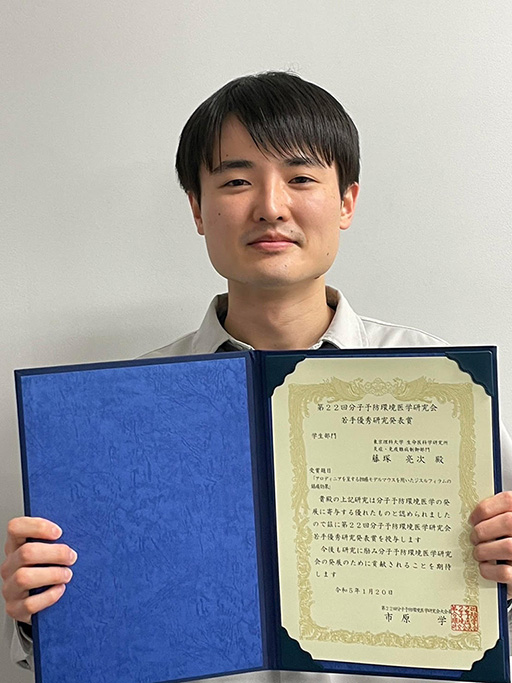 第22回分子予防環境医学研究会
若手優秀研究発表賞
学生部門
東京理科大学 生命医科学研究所
炎症・免疫難病制御部門
藤塚 亮次 殿
受賞題目
「アロディニアを呈する掻痒モデルマウスを用いたジスルフィラムの
鎮痛効果」
貴殿の上記研究は分子予防環境医学の発
展に寄与する優れたものと認められました
ので茲に第22回分子予防環境医学研究会
若手優秀研究発表賞を授与します
今後も研究に励み分子予防環境医学研究
会の発展のために貢献されることを期待
します
令和5年1月20日
第22回分子予防環境医学研究会大会長
市原 学